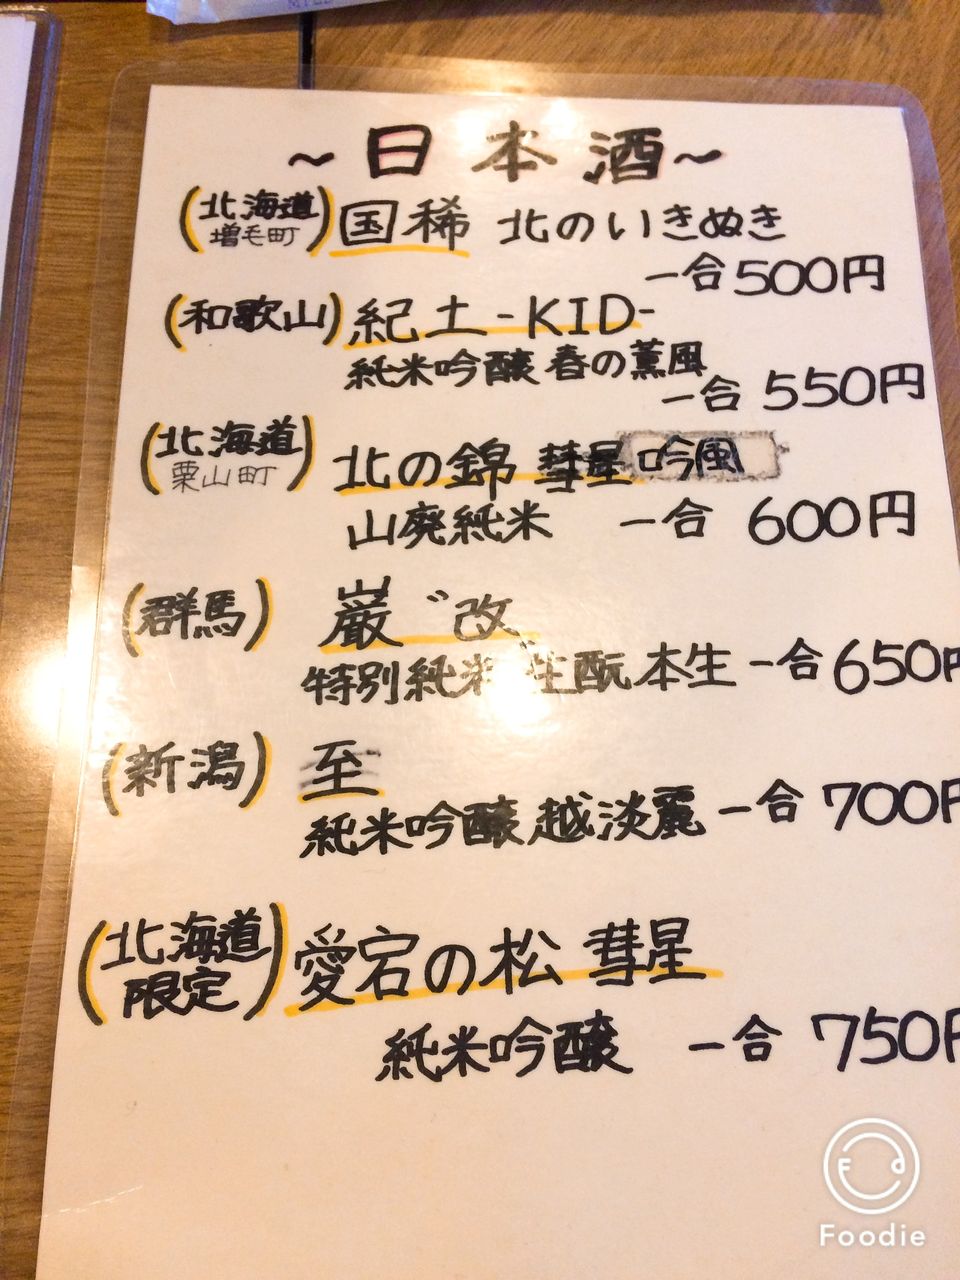 ～日本酒～
(北海道 増毛町) 国稀 北のいきぬき
一合500円
(和歌山) 紀土-KID-
純米吟醸 春の薫風
一合 550円
(北海道 栗山町) 北の錦 彗星 吟風
山廃純米 一合 600円
(群馬) 巌゛改
特別純米 生酛本生 一合 650円
(新潟) 至
純米吟醸 越淡麗 一合 700円
(北海道 限定) 愛宕の松 彗星
純米吟醸 一合 750円
Foodie